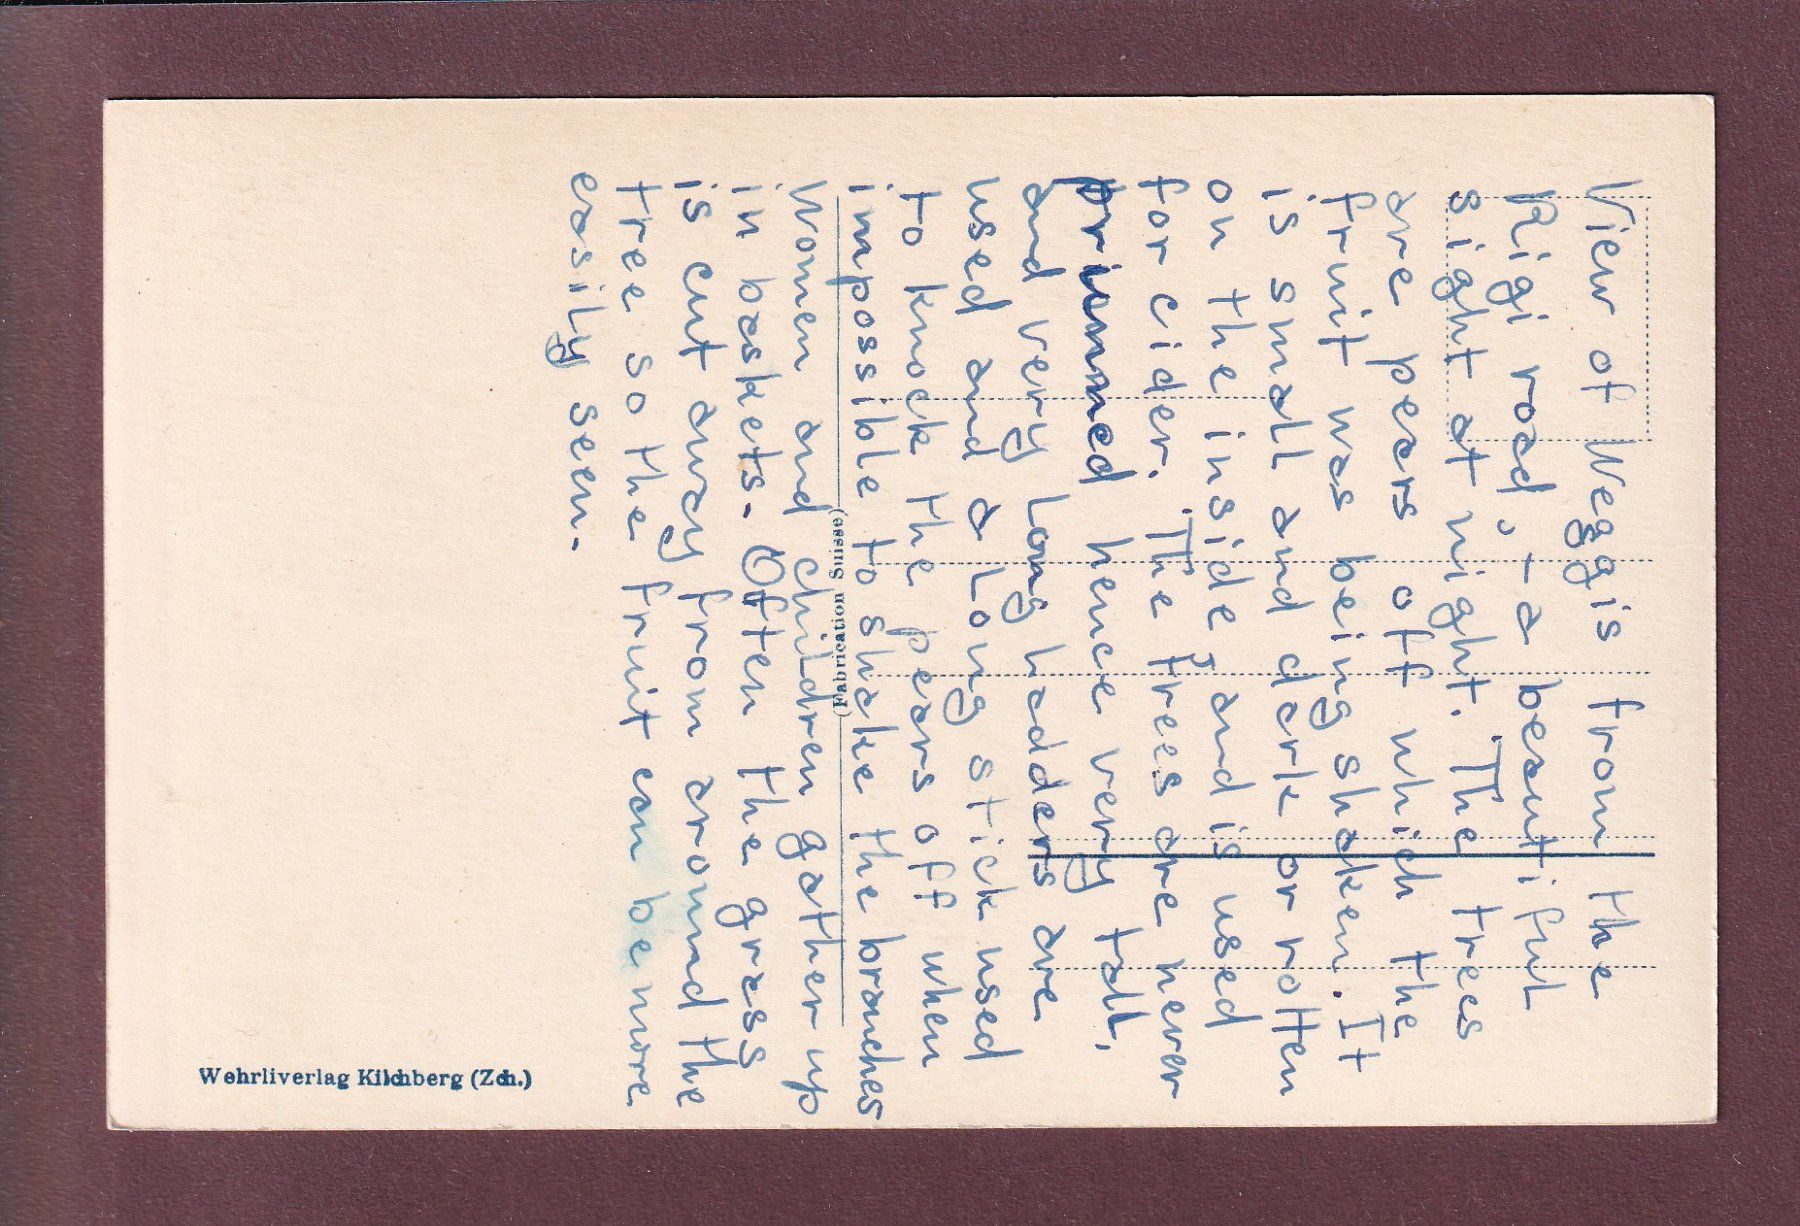 View of Weggis from the
Rigi road, - a beautiful
sight at night. The trees
are pears off which the
fruit was being shaken. It
is small and dark or rotten
on the inside, and is used
for cider. The trees are never
primmed hence very tall.
and very long ladders are
used and a long stick used
to knock the pears off when
impossible to shake the branches
Women and children gather up
in baskets. Often the grass
is cut away from around the
tree so the fruit can be more
easily seen.
(Fabrication Suisse)
Wehrliverlag Kilchberg (Zch.)